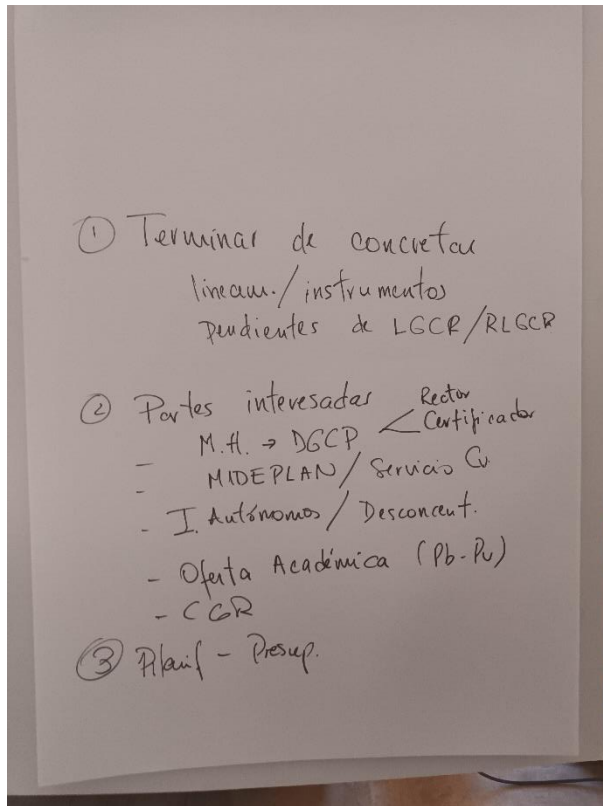 ① Terminar de concretar
lineam./instrumentos
pendientes de LGCP/RLGCP
② Partes interesadas
- M.H. → DGCP < Rector
Certificador
- MIDEPLAN/Servicio Cv
- I. Autónomos / Desconcent.
- Oferta Académica (Pb-Pv)
- CGR
③ Planif - Presup.